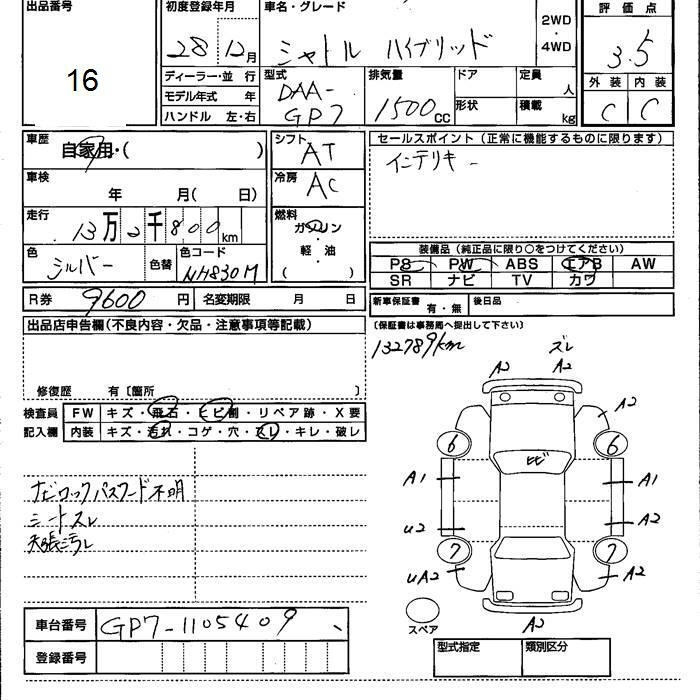 出品番号
16
初度登録年月
28 12月
車名・グレード
シャトル ハイブリッド
2WD
・
4WD
評価点
3.5
外装 内装
C C
ディーラー・並 行
モデル年式 年
ハンドル 左・右
型式
DAA-
GP7
排気量
1500cc
ドア
形状
定員 人
積載 kg
車歴
自家用・( )
シフト
AT
セールスポイント (正常に機能するものに限ります)
インテリキー
車検
年 月( 日)
冷房
AC
走行
13万2千800km
燃料
ガソリン
軽・油
( )
色
シルバー
色替
色コード
NH830M
装備品 (純正品に限り○をつけてください)
PS PW ABS エアB AW
SR ナビ TV カワ
R券 9600円
名変期限 月 日
新車保証書 有・無
後日品
(保証書は事務局へ提出して下さい)
132789km
出品店申告欄 (不良内容・欠品・注意事項等記載)
修復歴 有 〔箇所 〕
検査員
記入欄
FW キズ・飛石・ヒビ割・リペア跡・X要
内装 キズ・汚れ・コゲ・穴・スレ・キレ・破レ
ナビロックパスワード不明
シートスレ
天張汚レ
ズレ
A2 A2
A2
6 6
ヒビ
A1 A1
U2 A2
7 7
UA2 A2
A2
スペア
車台番号 GP7-1105409
登録番号
型式指定
類別区分